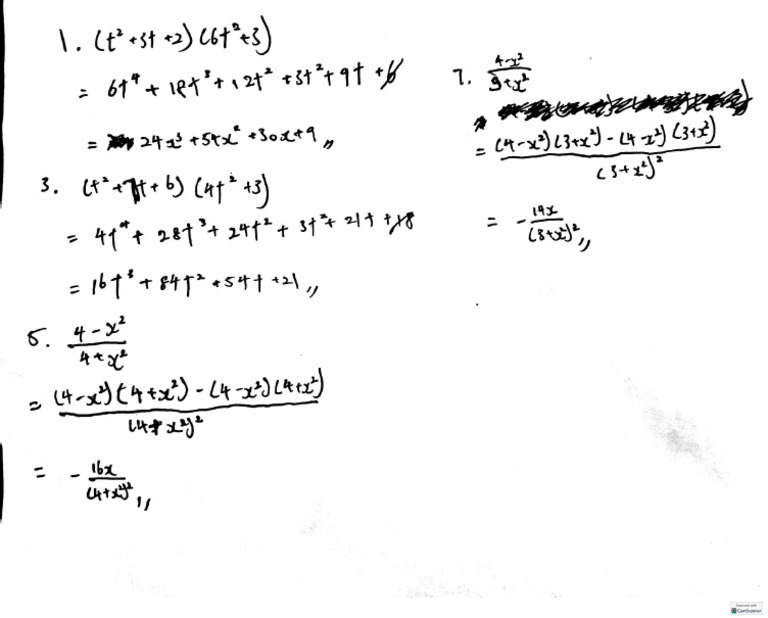 1. (t² + 3t + 2) (6t² + 3)
= 6t⁴ + 18t³ + 12t² + 3t² + 9t + 6
= 24x³ + 54x² + 30x + 9 //
3. (t² + 7t + 6) (4t² + 3)
= 4t⁴ + 28t³ + 24t² + 3t² + 21t + 18
= 16t³ + 84t² + 54t + 21 //
5. (4 - x²)/(4 + x²)
= ((4 - x²)(4 + x²) - (4 - x²)(4 + x²))/(4 + x²)²
= - 16x/(4 + x²)² //
7. (4 - x²)/(3 + x²)
= ((4 - x²)(3 + x²) - (4 - x²)(3 + x²))/(3 + x²)²
= - 14x/(3 + x²)² //
Scanned with
CamScanner